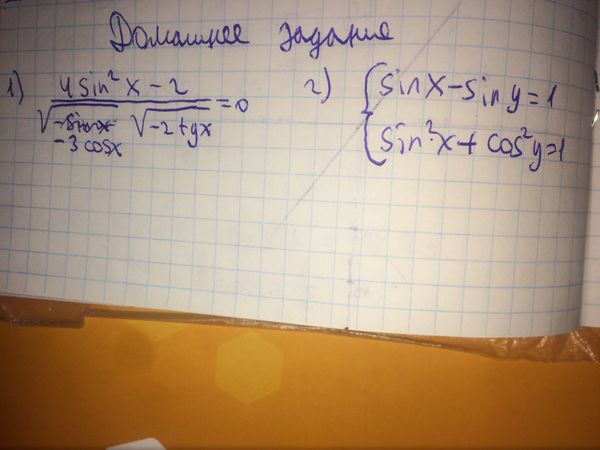 Домашнее задание
1) (4 sin² x − 2) / (√(−3 cos x) √(−2 tg x)) = 0
2) { sin x − sin y = 1
sin² x + cos² y = 1